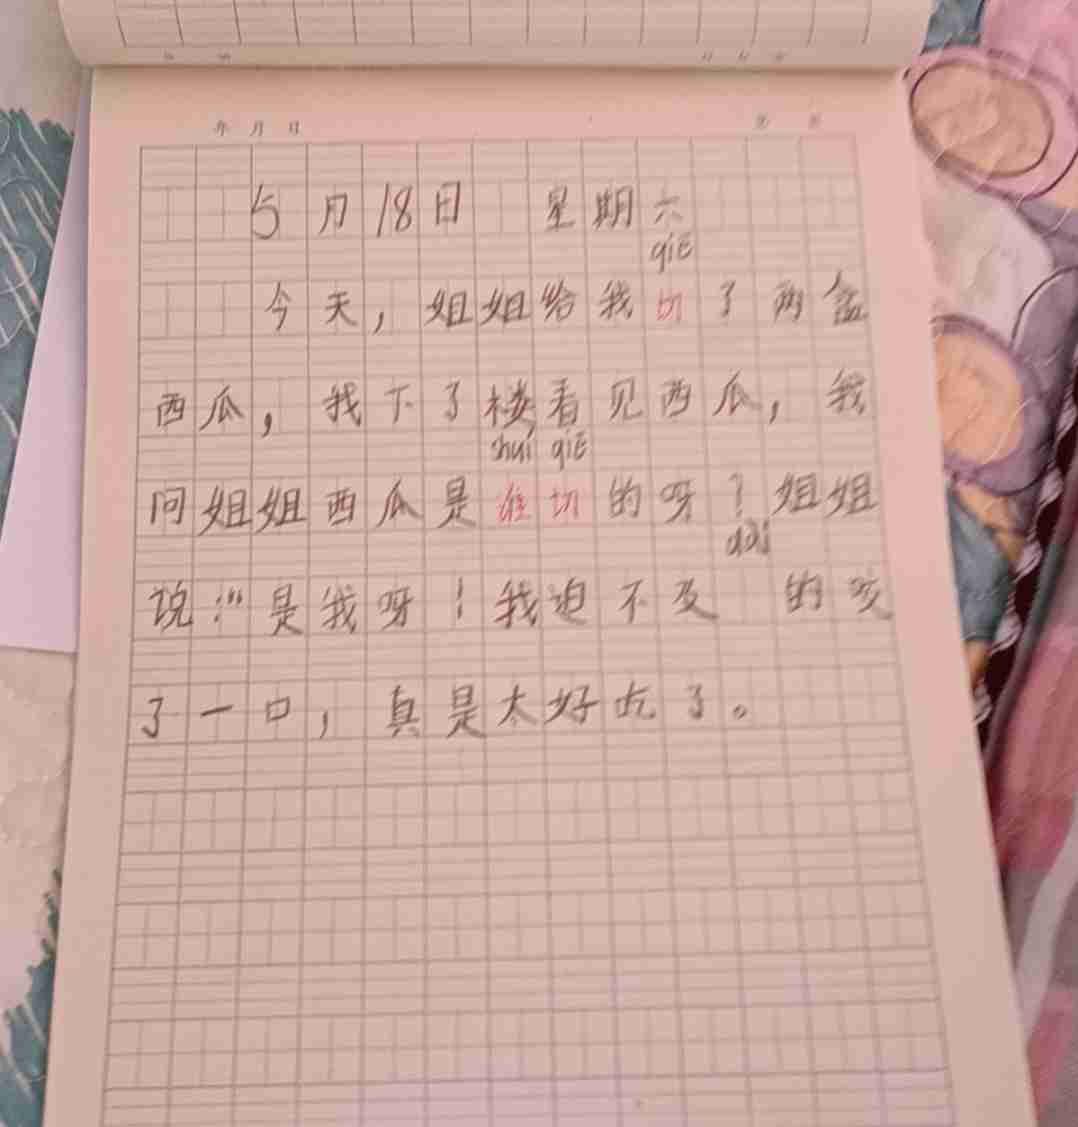 年 月 日
5月18日 星期六
qiē
今天，姐姐给我切了两盆
西瓜，我下了楼看见西瓜，我
shuí qiē
问姐姐西瓜是谁切的呀？姐姐
dài
说：“是我呀！我迫不及 的咬
了一口，真是太好吃了。